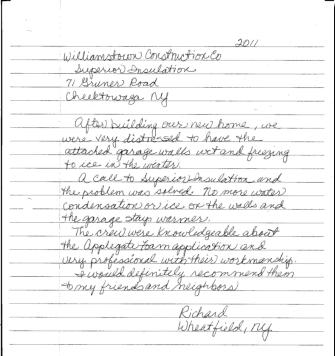 2011
Williamstown Construction Co
Superior Insulation
71 Gruner Road
Cheektowaga NY
After building our new home, we
were very distressed to have the
attached garage walls wet and freezing
to ice in the water.
A call to Superior Insulation and
the problem was solved. No more water
condensation or ice on the walls and
the garage stays warmer.
The crew were knowledgeable about
the Applegate foam application and
very professional with their workmanship.
I would definitely recommend them
to my friends and neighbors
Richard
Wheatfield, NY